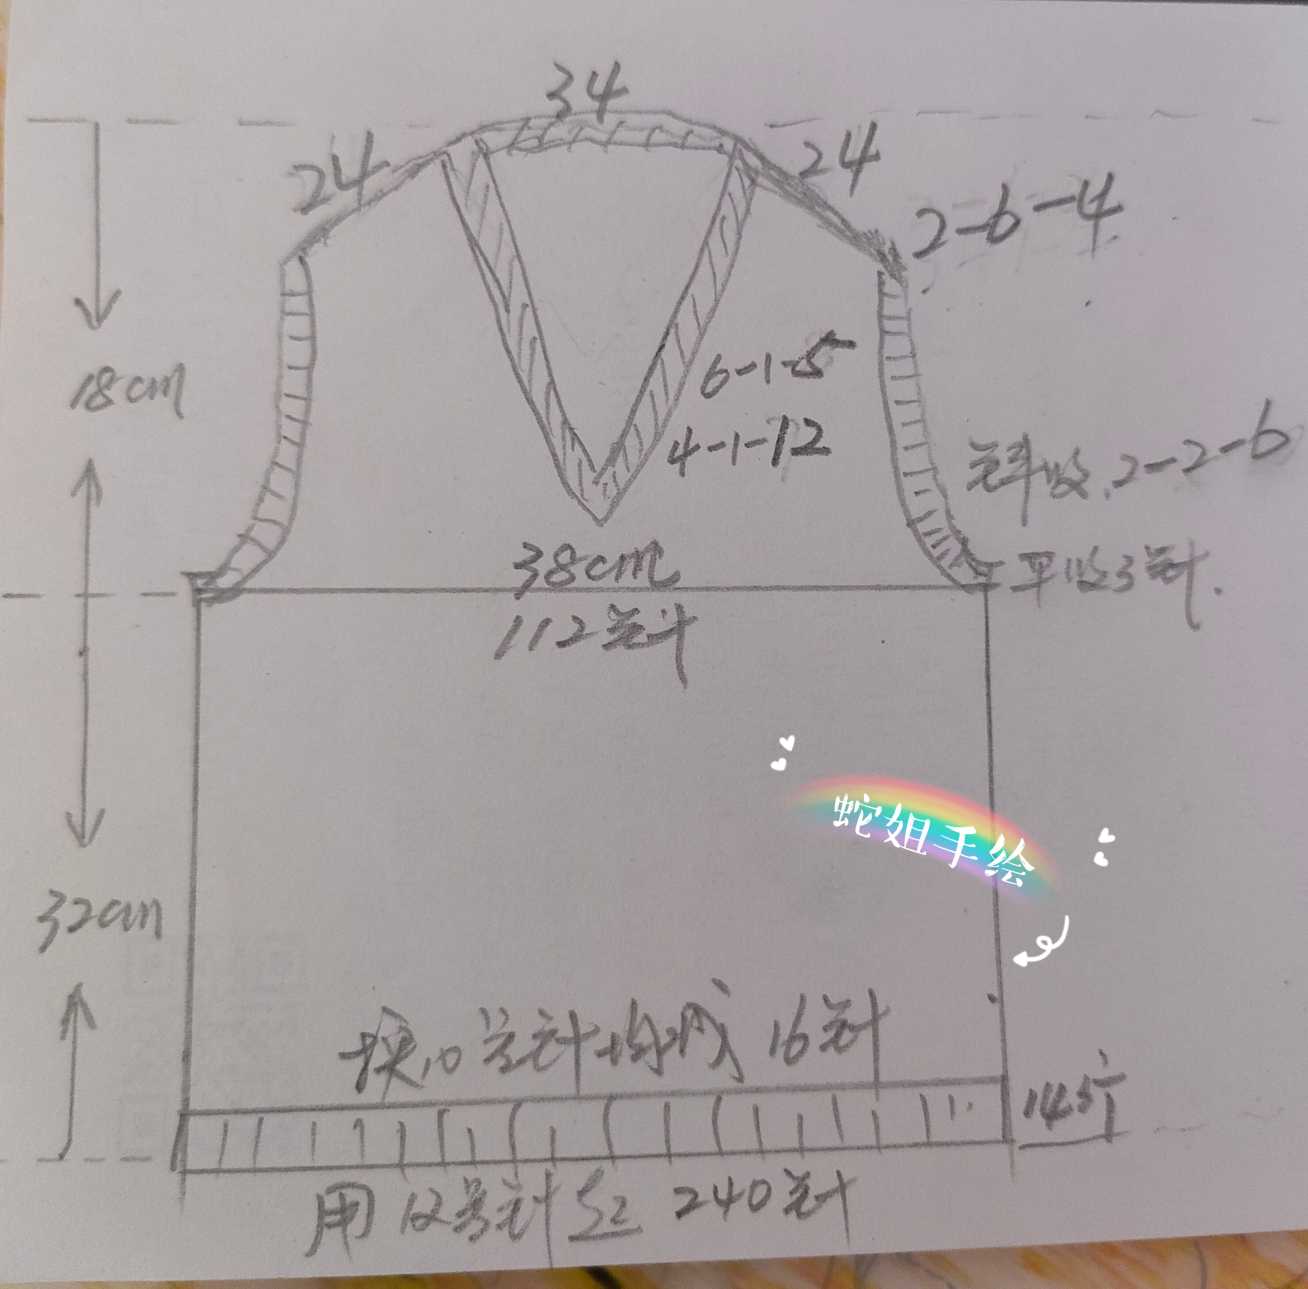 34
24
24
2-6-4
18cm
6-1-5
4-1-12
斜收.2-2-6
38cm
平收3针.
112针
蛇姐手绘
32cm
换10号针均减16针
14行
用12号针起240针